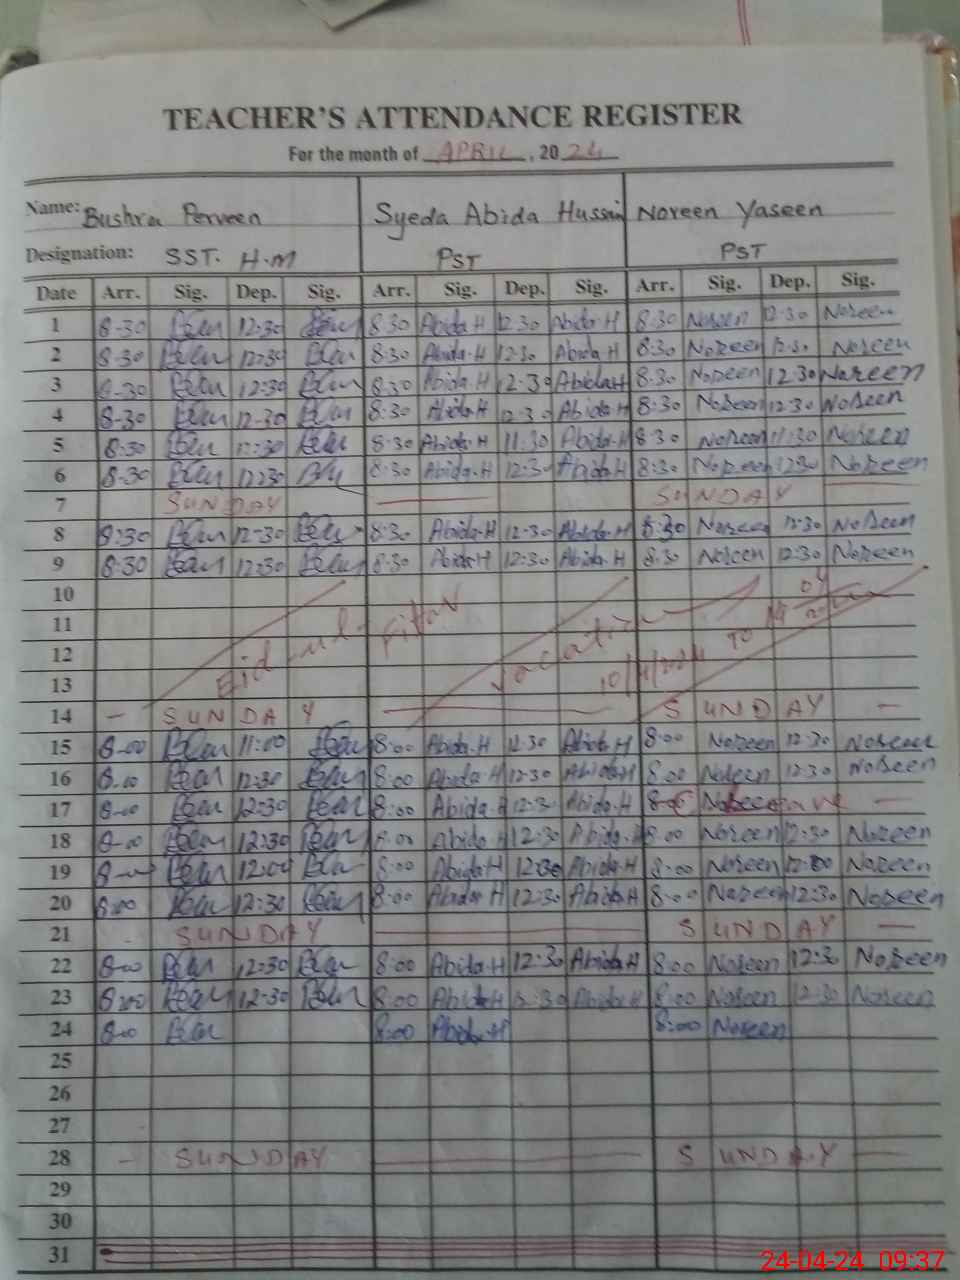 TEACHER'S ATTENDANCE REGISTER
For the month of APRIL, 2024
Name: Bushra Perveen Syeda Abida Hussain Noreen Yaseen
Designation: SST. H.M PST PST
Date Arr. Sig. Dep. Sig. Arr. Sig. Dep. Sig. Arr. Sig. Dep. Sig.
1 8-30 12-30 8:30 Abida.H 12:30 Abida.H 8:30 Noreen 12:30 Noreen
2 8-30 12-30 8:30 Abida.H 12:30 Abida.H 8:30 Noreen 12:30 Noreen
3 8-30 12:30 8:30 Abida.H 12:30 Abida.H 8:30 Noreen 12:30 Noreen
4 8-30 12-30 8:30 Abida.H 12:30 Abida.H 8:30 Noreen 12:30 Noreen
5 8:30 8:30 Abida.H 11:30 Abida.H 8:30 Noreen 11:30 Noreen
6 8-30 12:30 8:30 Abida.H 12:30 Abida.H 8:30 Noreen 12:30 Noreen
7 SUNDAY SUNDAY
8 8:30 12-30 8:30 Abida.H 12:30 Abida.H 8:30 Noreen 12:30 Noreen
9 8:30 12:30 8:30 Abida.H 12:30 Abida.H 8:30 Noreen 12:30 Noreen
10
11 Eid-ul-Fittar vacation
12 10/4/2024 TO 14
13
14 - SUNDAY SUNDAY -
15 8-00 11:00 8:00 Abida.H 12:30 Abida.H 8:00 Noreen 12:30 Noreen
16 8.00 12:30 8:00 Abida.H 12:30 Abida.H 8:00 Noreen 12:30 Noreen
17 8-00 12:30 8:00 Abida.H 12:30 Abida.H -
18 8-00 12:30 8:00 Abida.H 12:30 Abida.H 8:00 Noreen 12:30 Noreen
19 8-00 12:00 8:00 Abida.H Abida.H 8:00 Noreen 12:00 Noreen
20 8:00 12:30 8:00 Abida.H 12:30 Abida.H 8:00 Noreen 12:30 Noreen
21 SUNDAY SUNDAY -
22 8-00 12:30 8:00 Abida.H 12:30 Abida.H 8:00 Noreen 12:30 Noreen
23 8:00 12-30 8:00 Abida.H 12:30 Abida.H 8:00 Noreen 12:30 Noreen
24 8-00 8:00 Abida.H 8:00 Noreen
25
26
27
28 - SUNDAY SUNDAY -
29
30
31
24-04-24 09:37